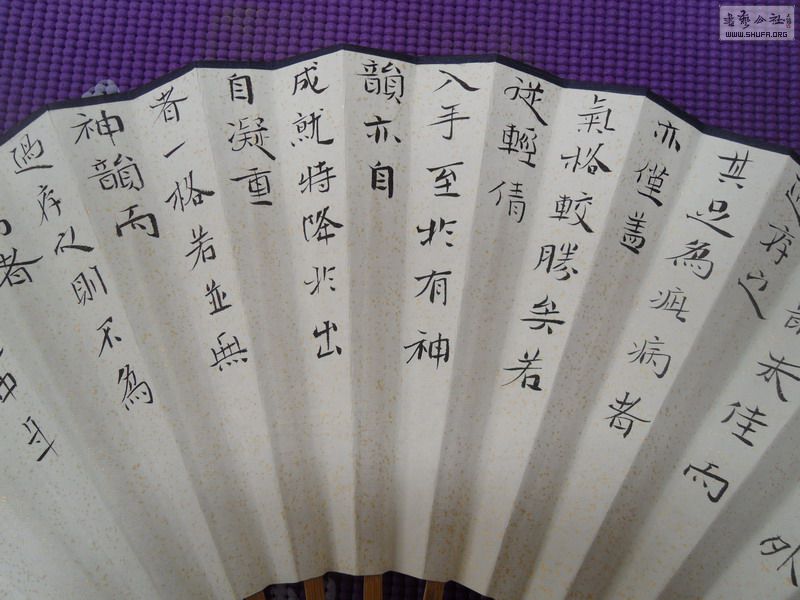 書藝公社
WWW.SHUFA.ORG
外
未佳而
過存之
其足為疵病者
亦僅蓋
氣格較勝矣若
從輕倩
入手至於有神
韻亦自
成就特降於出
自凝重
者一格若並無
神韻而
過存之則不為
者